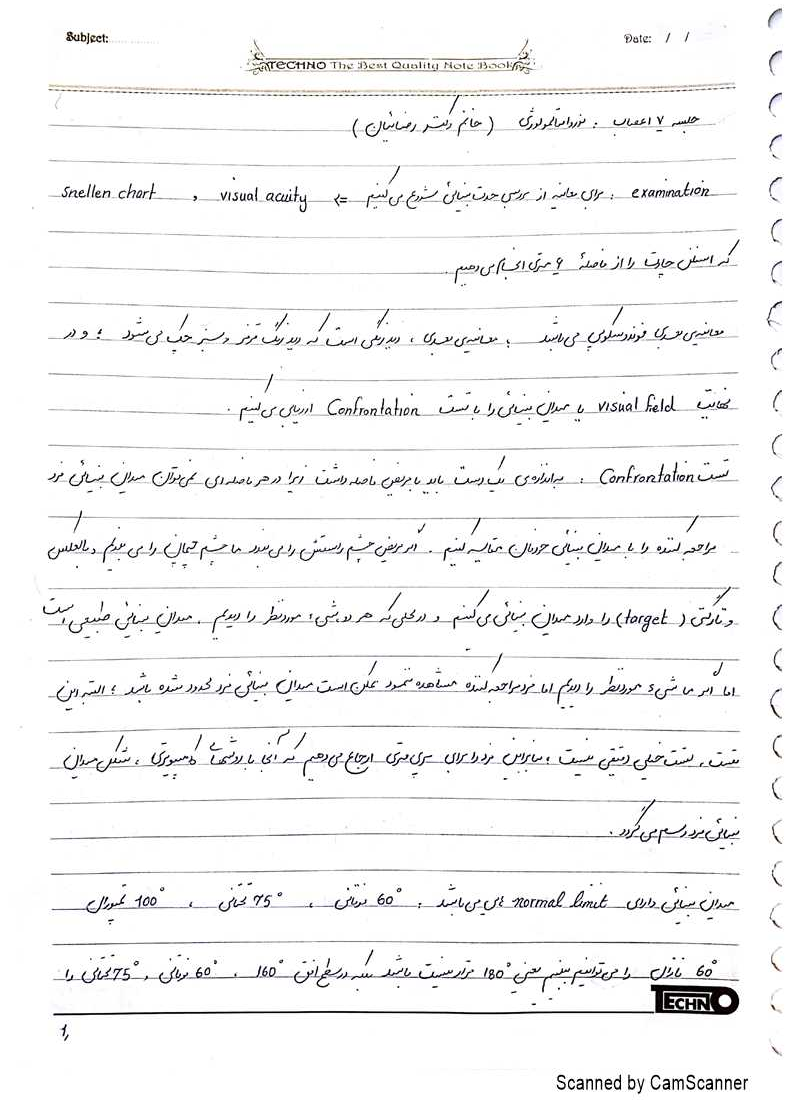 Subject:
Date: / /
TECHNO The Best Quality Note Book
جلسه ۷ اعصاب : نوروافتالمولوژی ( خانم دکتر رضائیان )
examination : برای معاینه از بررسی حدت بینائی شروع می‌کنیم <= visual acuity , snellen chart
که اسنلن چارت را از فاصلهٔ ۶ متری انجام می‌دهیم .
معاینه‌ی بعدی فوندوسکوپی می‌باشد ؛ معاینه‌ی بعدی ، دید رنگی است که دید رنگ قرمز و سبز چک می‌شود ؛ و در
نهایت visual field یا میدان بینائی را با تست Confrontation ارزیابی می‌کنیم .
تست Confrontation : به اندازه‌ی یک دست باید با مریض فاصله داشت زیرا در هر فاصله‌ای نمی‌توان میدان بینائی فرد
مراجعه کننده را با میدان بینائی خودمان مقایسه کنیم . اگر مریض چشم راستش را می‌بندد ما چشم چپمان را می‌بندیم و بالعکس
و تارگتی ( target ) را وارد میدان بینائی می‌کنیم و در محلی که هر دو شیء مورد نظر را دیدیم . میدان بینائی طبیعی است
اما اگر ما شیء مورد نظر را دیدیم اما فرد مراجعه کننده مشاهده ننمود ممکن است میدان بینائی فرد محدود شده باشد ؛ البته این
تست ، تست خیلی دقیقی نیست ؛ بنابراین فرد را برای پریمتری ارجاع می‌دهیم که آنجا با روشهای کامپیوتری ، شکل میدان
بینائی فرد رسم می‌گردد .
میدان بینائی دارای normal limit هایی می‌باشد : 60° فوقانی ، 75° تحتانی ، 100° تمپورال
60° نازال را می‌توانیم ببینیم یعنی 180° قرار نیست باشد بلکه در سطح افق 160° ، 60° فوقانی ، 75° تحتانی را
TECHNO
1,
Scanned by CamScanner